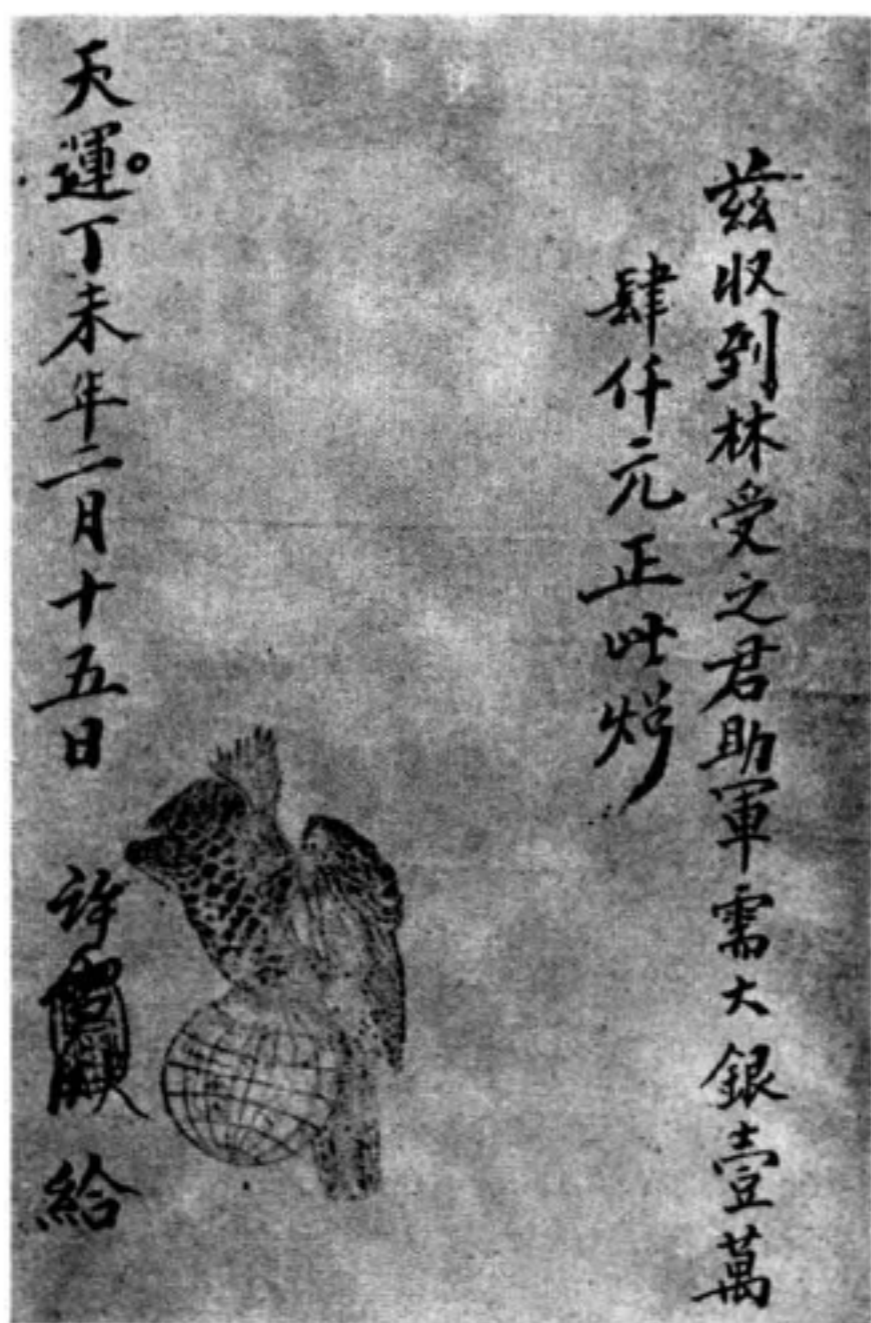 茲收到林受之君助軍需大銀壹萬
肆仟元正此㷖
天運。丁未年二月十五日 許雪湫 給